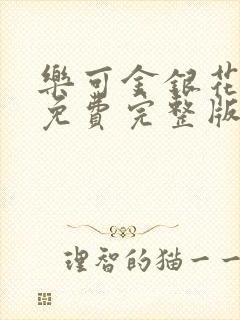 樂可金銀花
免費完整版
理智的猫一一